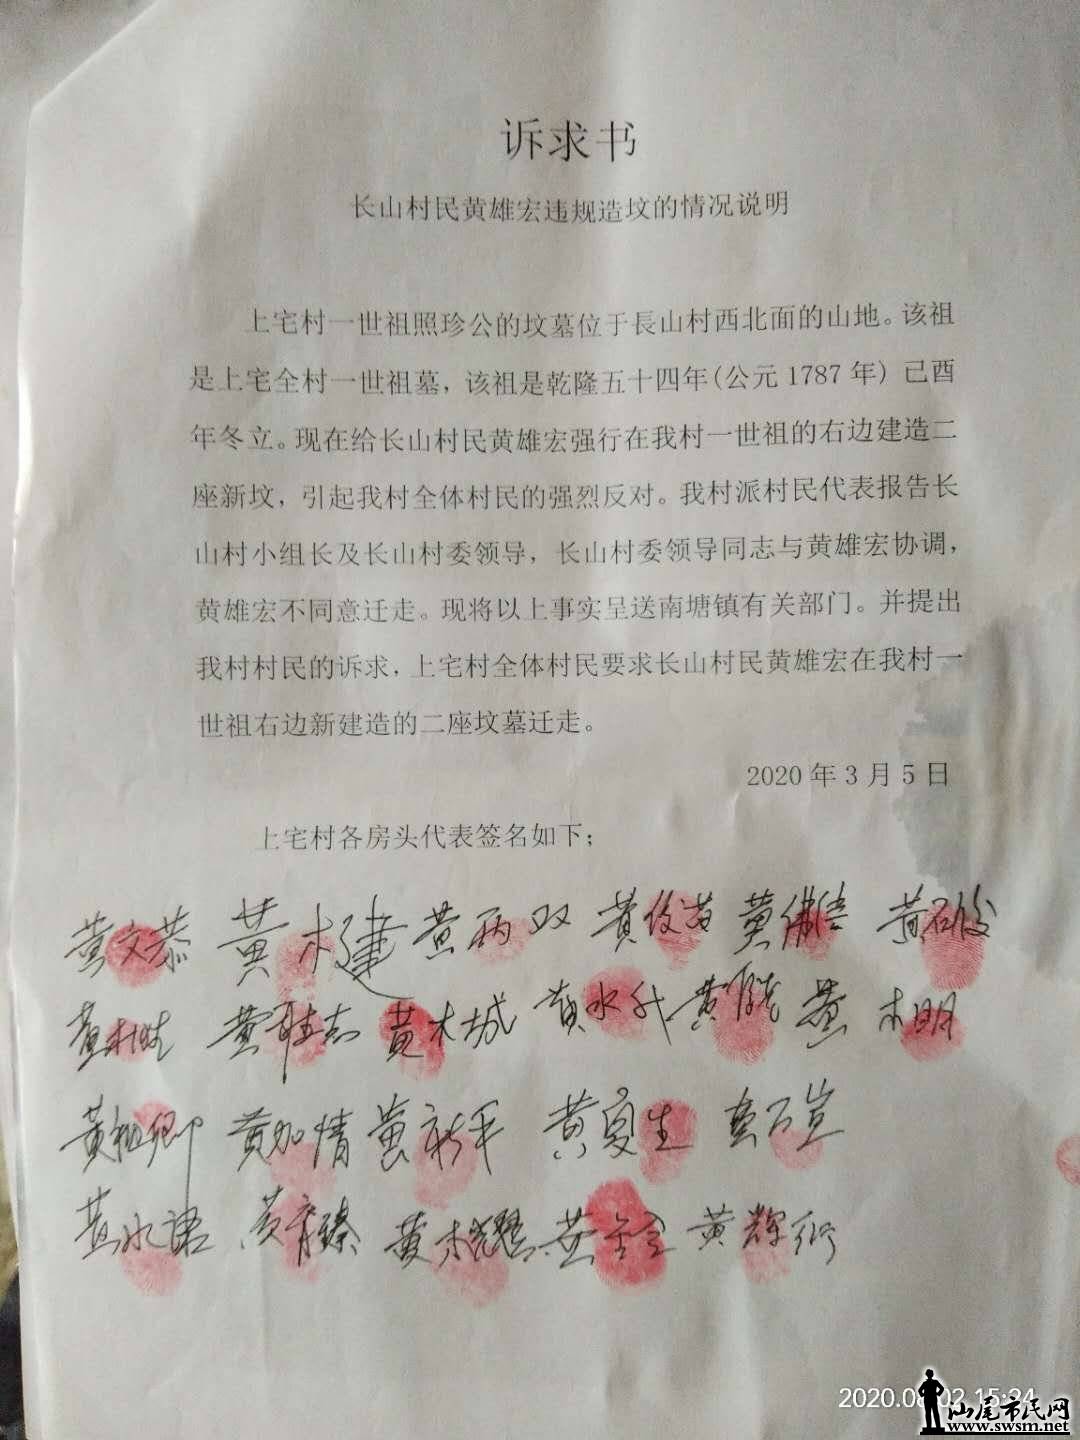 诉求书
长山村民黄雄宏违规造坟的情况说明
上宅村一世祖照珍公的坟墓位于長山村西北面的山地。该祖
是上宅全村一世祖墓，该祖是乾隆五十四年(公元1787年) 己酉
年冬立。现在给长山村民黄雄宏强行在我村一世祖的右边建造二
座新坟，引起我村全体村民的强烈反对。我村派村民代表报告长
山村小组长及长山村委领导，长山村委领导同志与黄雄宏协调，
黄雄宏不同意迁走。现将以上事实呈送南塘镇有关部门。并提出
我村村民的诉求，上宅村全体村民要求长山村民黄雄宏在我村一
世祖右边新建造的二座坟墓迁走。
2020年3月5日
上宅村各房头代表签名如下；
黄文恭 黄木建 黄两双 黄 黄 黄
黄 黄 志 黄木城 黄水 黄 黄木明
黄祖卿 黄加情 黄新平 黄夏生 黄
黄水 黄育臻 黄木耀 黄 黄辉
2020.08.02 15:24
汕尾市民网
www.swsm.net